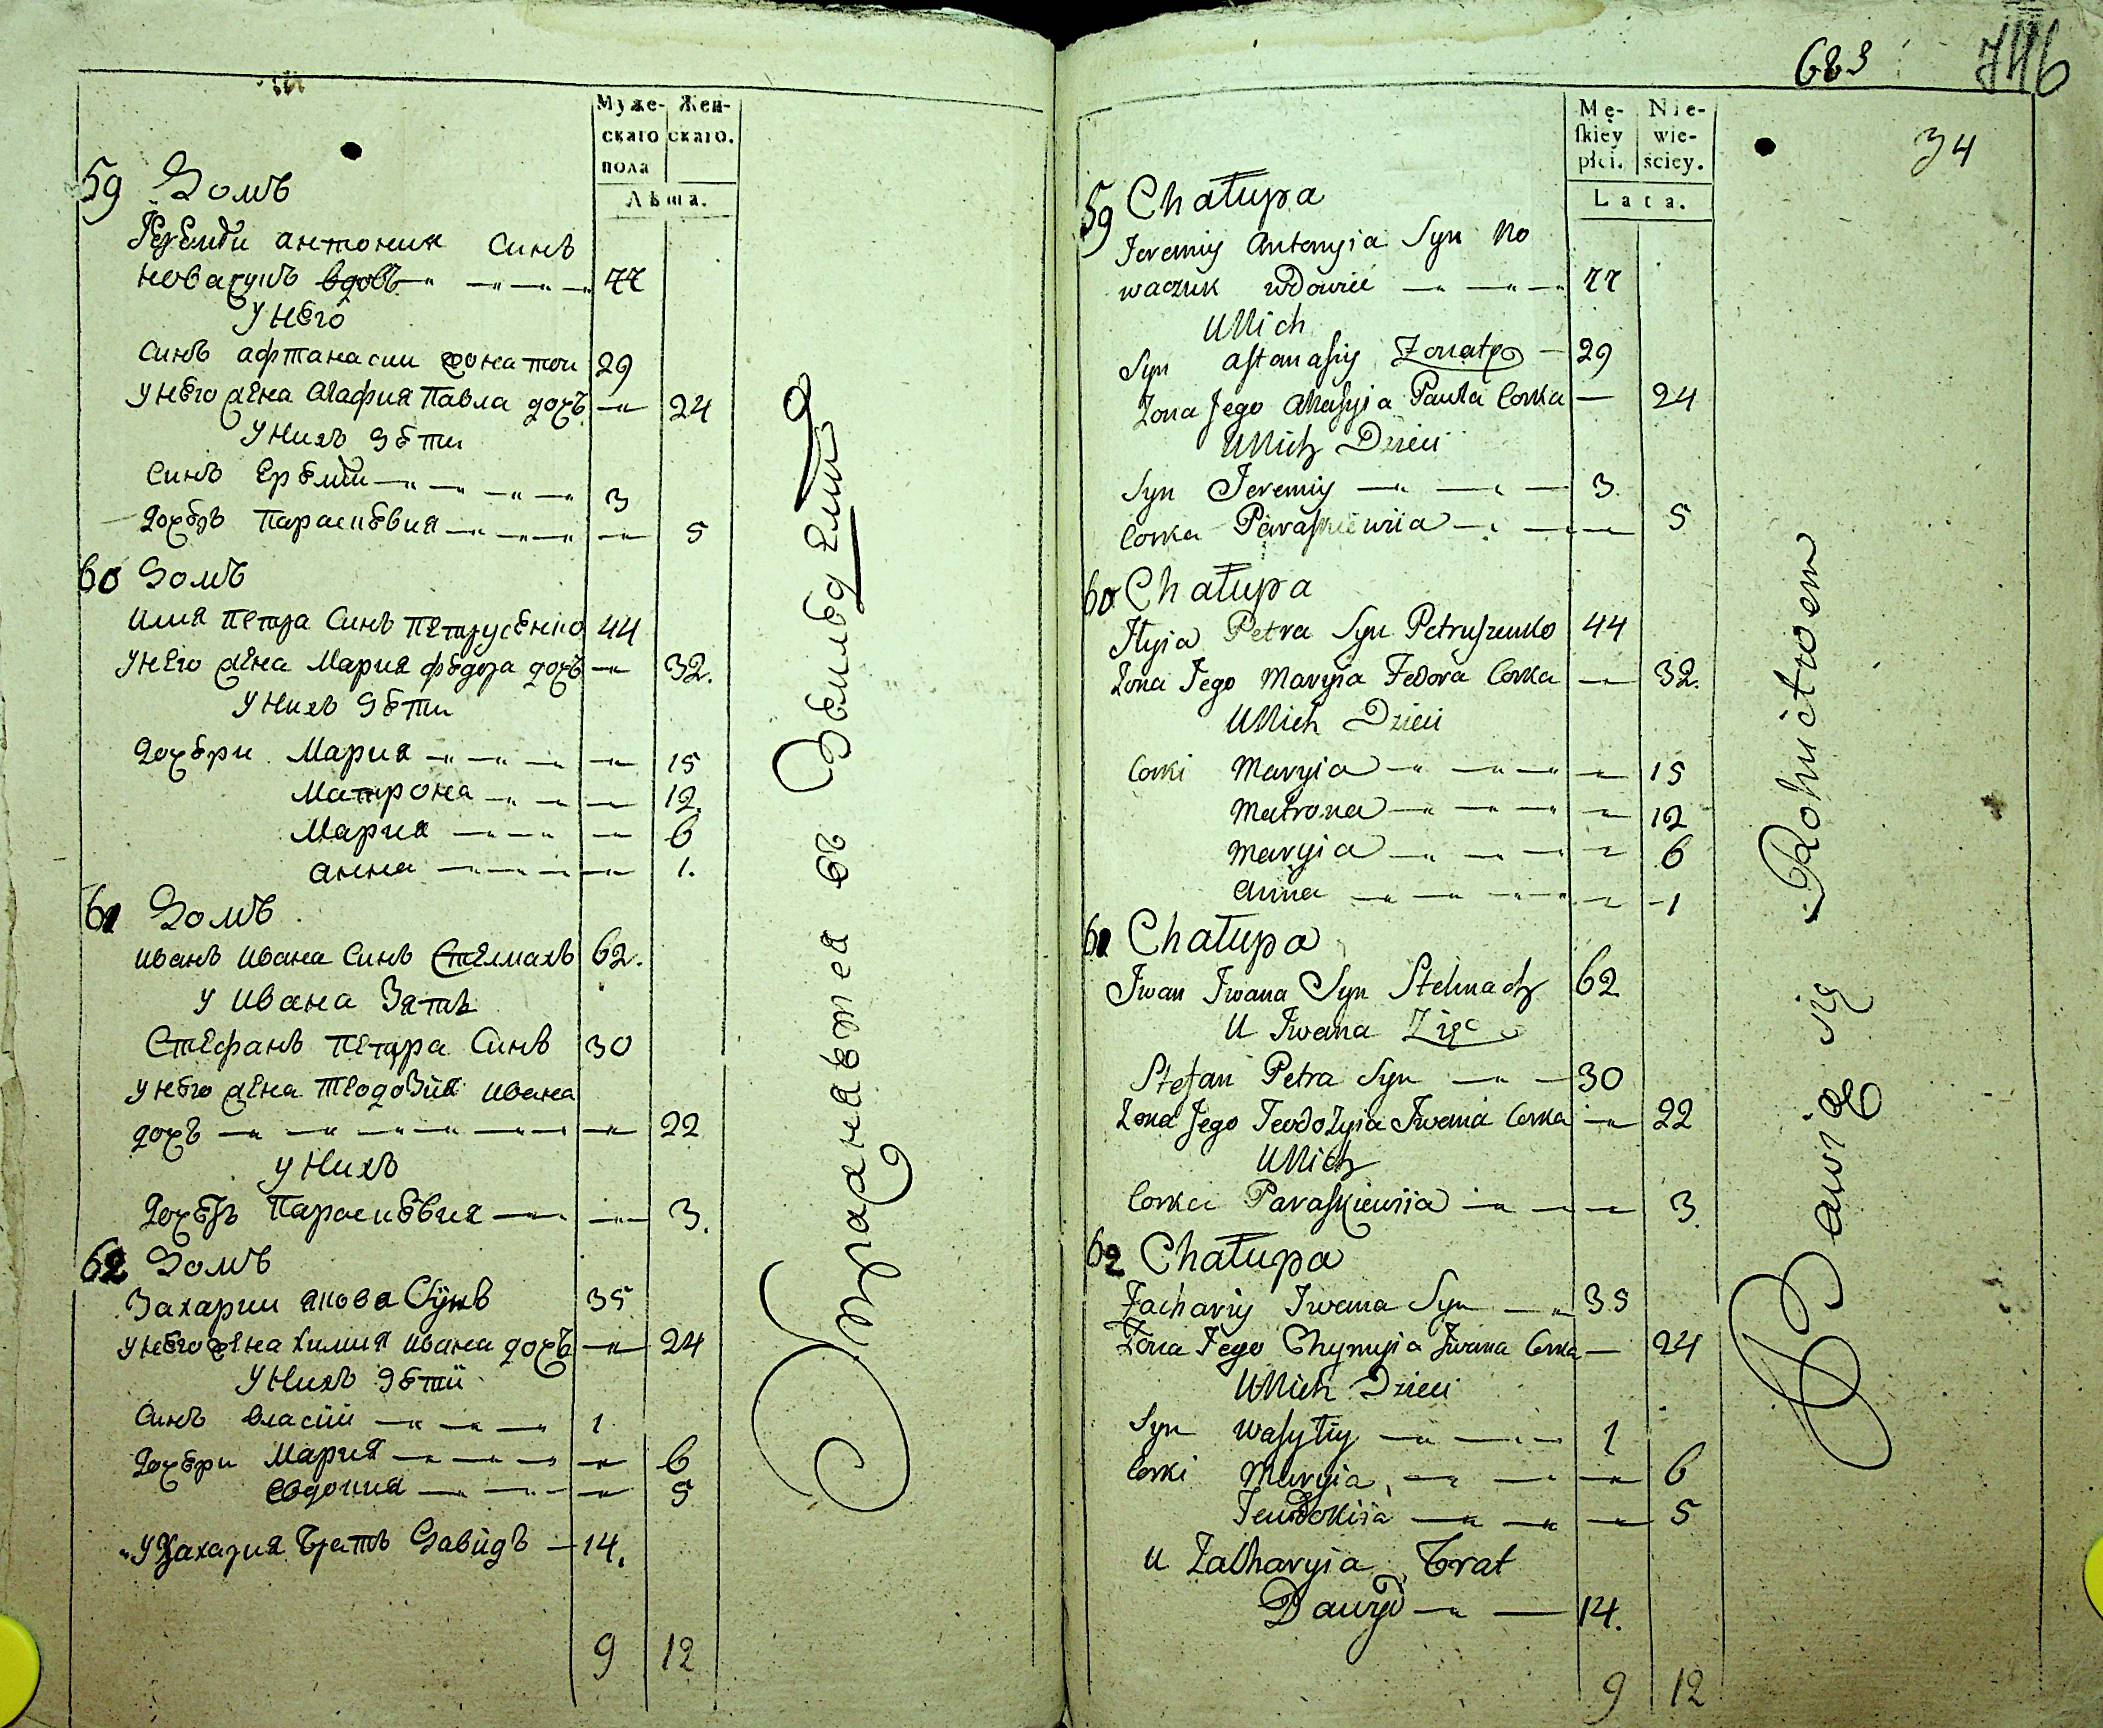 Муже- Жен-
скаго скаго.
пола
Лѣта.
59 Домъ
Иереми антония синъ
новачукъ вдовъ 77
У него
синъ афтанасии жонатои 29
У него жена агафия Павла дочъ 24
У нихъ дѣти
синъ Еремии 3
дочеръ Параскевия 5
60 Домъ
Илия Петра Синъ Петрусенко 44
У него жена Мария федора дочъ 32.
У нихъ дѣти
дочери Мария 15
Матрона 12.
Мария 6
анна 1.
61 Домъ
иванъ ивана Синъ Стелмахъ 62.
У ивана Зятъ
Стефанъ Петра Синъ 30
У него жена Теодозия ивана
дочъ 22
У нихъ
дочеръ Параскевия 3.
62 Домъ
Захарии якова Сынъ 35
У него жена химия ивана дочъ 24
У нихъ дѣтй
Синъ власий 1
дочери Мария 6
евдокия 5
У Захария Братъ Давидъ 14.
9 12
Упражнявтся въ Земледелии
683 746
34
Mę- Nie-
skiey wie-
płci. ściey.
Lata.
59 Chałupa
Jeremiy Antonyia Syn No
waczuk wdowiec 77
U Nich
Syn Aftanasiy Żonaty 29
Żona Jego Ahafyia Pawła Corka 24
U Nich Dzieci
Syn Jeremiy 3.
Corka Paraskiewiia 5
60 Chałupa
Ilyia Petra Syn Petruszenko 44
Żona Jego Maryia Fedora Corka 32.
U Nich Dzieci
Corki Maryia 15
Matrona 12
Maryia 6
Anna 1
61 Chałupa
Jwan Jwana Syn Stelmach 62
U Jwana Zięc
Stefan Petra Syn 30
Żona Jego Teodozyia Jwana Corka 22
U Nich
Corka Paraskiewiia 3.
62 Chałupa
Zachariy Jwana Syn 35
Żona Jego Chymyia Jwana Corka 24
U Nich Dzieci
Syn Wasyliy 1
Corki Maryia 6
Jewdokiia 5
U Zacharyia Brat
Dawyd 14.
9 12
Bawią się Rolnictwem